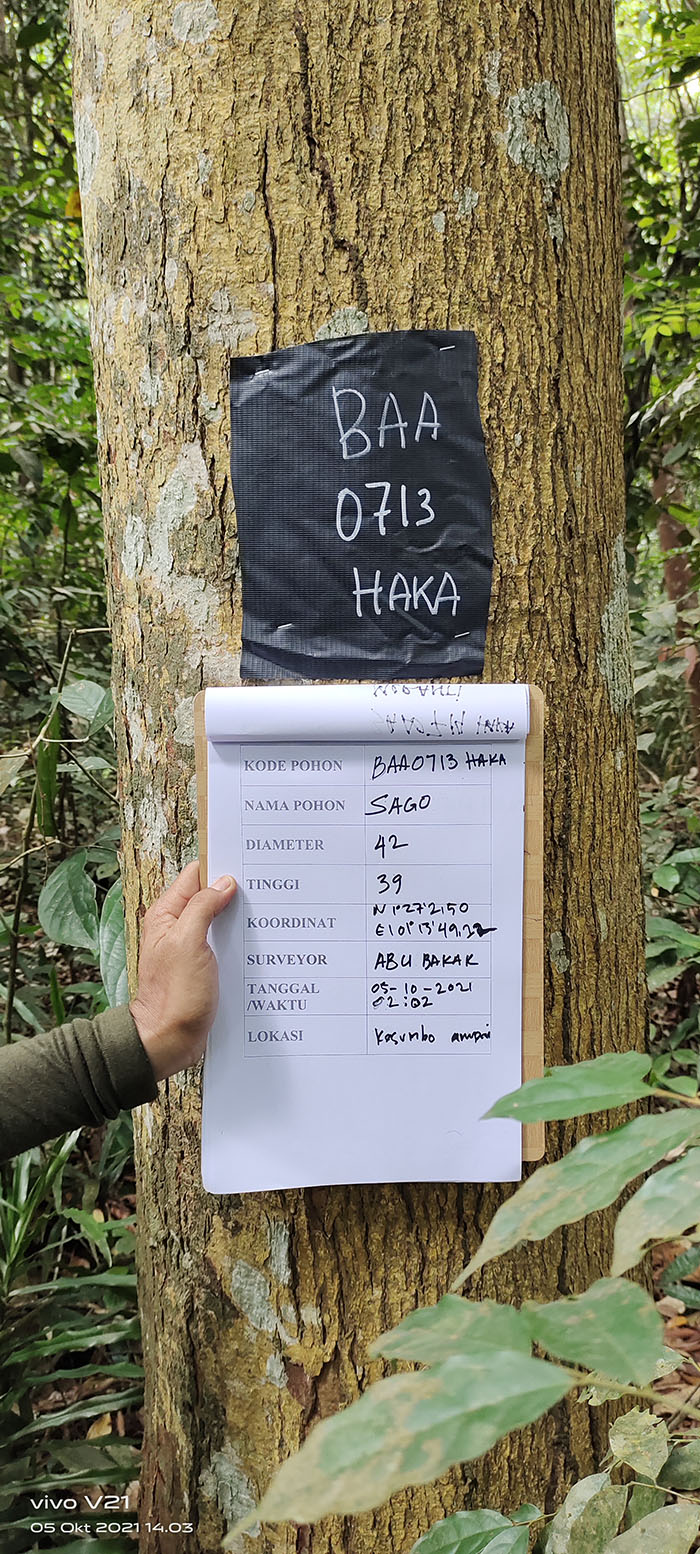 BAA
0713
HAKA
KODE POHON BAA0713 HAKA
NAMA POHON SAGO
DIAMETER 42
TINGGI 39
KOORDINAT N 1°27'2,50
E101°13'49,22
SURVEYOR ABU BAKAR
TANGGAL 05-10-2021
/WAKTU 02:02
LOKASI Kasumbo ampai
vivo V21
05 Okt 2021 14.03